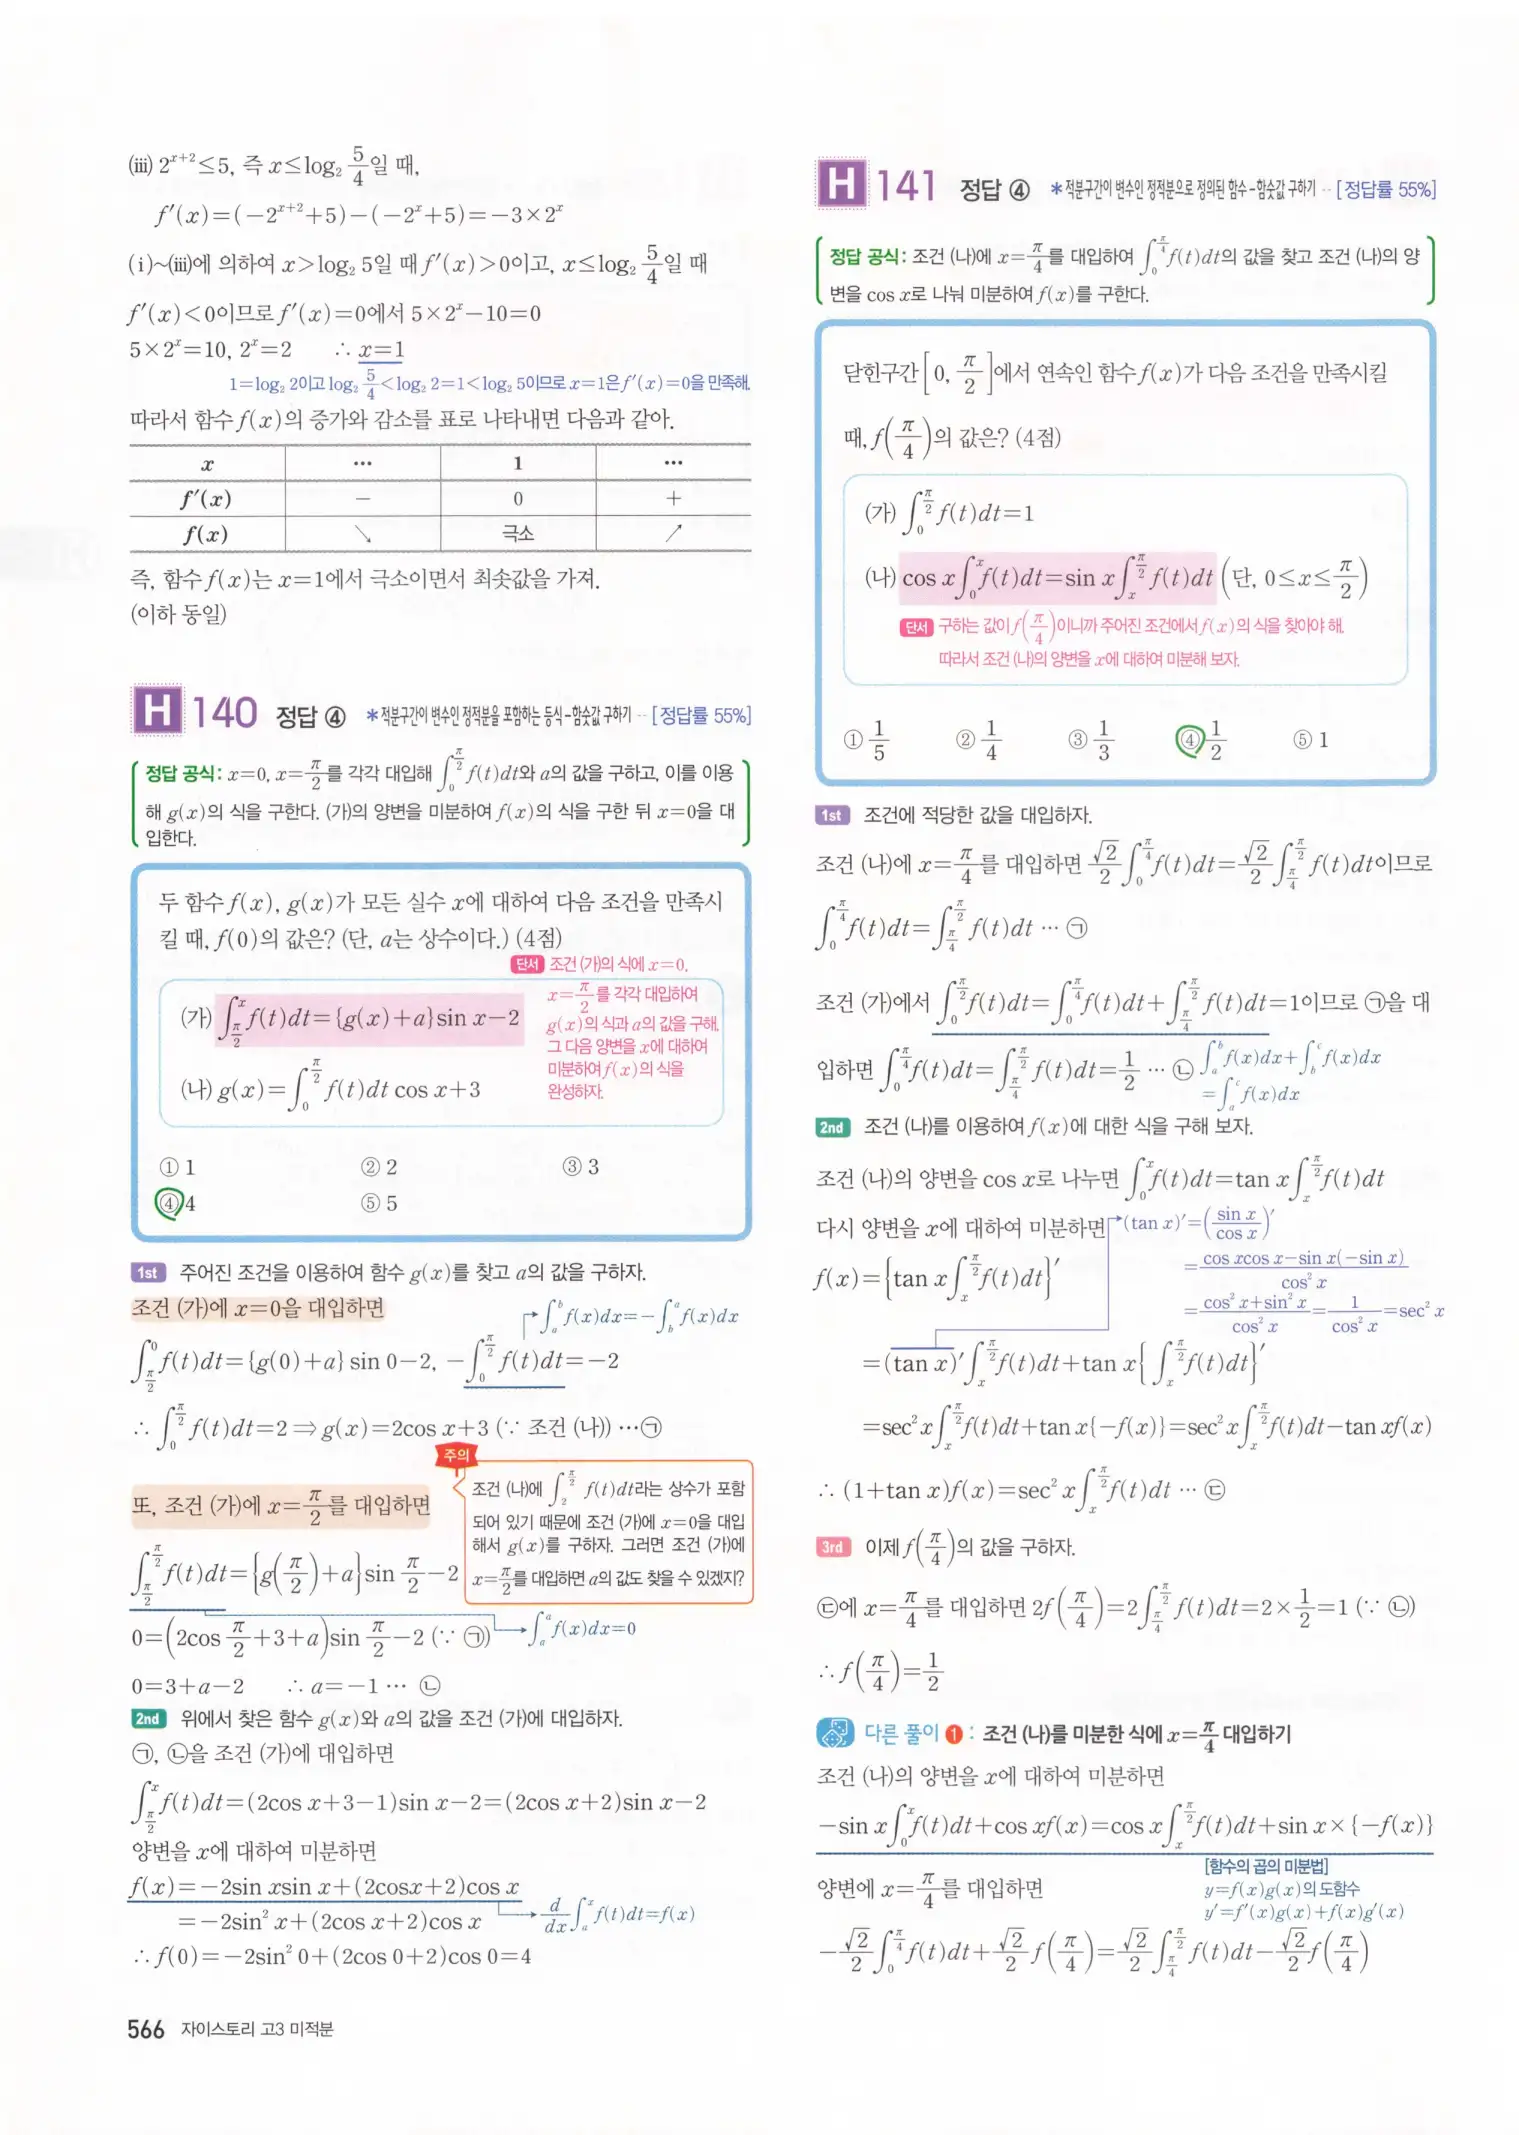 (ⅲ) 2^{x+2}≤5, 즉 x≤log₂ 5/4일 때,
f′(x)=(−2^{x+2}+5)−(−2^x+5)=−3×2^x
(ⅰ)~(ⅲ)에 의하여 x>log₂ 5일 때 f′(x)>0이고, x≤log₂ 5/4일 때
f′(x)<0이므로 f′(x)=0에서 5×2^x−10=0
5×2^x=10, 2^x=2 ∴ x=1
1=log₂ 2이고 log₂ 5/4<log₂ 2=1<log₂ 5이므로 x=1은 f′(x)=0을 만족해.
따라서 함수 f(x)의 증가와 감소를 표로 나타내면 다음과 같아.
x … 1 …
f′(x) − 0 +
f(x) ↘ 극소 ↗
즉, 함수 f(x)는 x=1에서 극소이면서 최솟값을 가져.
(이하 동일)
H 140 정답 ④ *적분구간이 변수인 정적분을 포함하는 등식-함숫값 구하기 ·· [정답률 55%]
정답 공식: x=0, x=π/2를 각각 대입해 ∫₀^{π/2} f(t)dt와 a의 값을 구하고, 이를 이용
해 g(x)의 식을 구한다. (가)의 양변을 미분하여 f(x)의 식을 구한 뒤 x=0을 대
입한다.
두 함수 f(x), g(x)가 모든 실수 x에 대하여 다음 조건을 만족시
킬 때, f(0)의 값은? (단, a는 상수이다.) (4점)
단서 조건 (가)의 식에 x=0,
x=π/2를 각각 대입하여
g(x)의 식과 a의 값을 구해.
그 다음 양변을 x에 대하여
미분하여 f(x)의 식을
완성하자.
(가) ∫_{π/2}^x f(t)dt={g(x)+a}sin x−2
(나) g(x)=∫₀^{π/2} f(t)dt cos x+3
① 1 ② 2 ③ 3
④ 4 ⑤ 5
1st 주어진 조건을 이용하여 함수 g(x)를 찾고 a의 값을 구하자.
조건 (가)에 x=0을 대입하면
∫_a^b f(x)dx=−∫_b^a f(x)dx
∫_{π/2}^0 f(t)dt={g(0)+a} sin 0−2, −∫₀^{π/2} f(t)dt=−2
∴ ∫₀^{π/2} f(t)dt=2 ⇒ g(x)=2cos x+3 (∵ 조건 (나)) …㉠
주의
조건 (나)에 ∫_2^{π/2} f(t)dt라는 상수가 포함
되어 있기 때문에 조건 (가)에 x=0을 대입
해서 g(x)를 구하자. 그러면 조건 (가)에
x=π/2를 대입하면 a의 값도 찾을 수 있겠지?
또, 조건 (가)에 x=π/2를 대입하면
∫_{π/2}^{π/2} f(t)dt={g(π/2)+a}sin π/2−2
0=(2cos π/2+3+a)sin π/2−2 (∵ ㉠) → ∫_a^a f(x)dx=0
0=3+a−2 ∴ a=−1 … ㉡
2nd 위에서 찾은 함수 g(x)와 a의 값을 조건 (가)에 대입하자.
㉠, ㉡을 조건 (가)에 대입하면
∫_{π/2}^x f(t)dt=(2cos x+3−1)sin x−2=(2cos x+2)sin x−2
양변을 x에 대하여 미분하면
f(x)=−2sin xsin x+(2cosx+2)cos x
=−2sin² x+(2cos x+2)cos x → d/dx ∫_a^x f(t)dt=f(x)
∴ f(0)=−2sin² 0+(2cos 0+2)cos 0=4
566 자이스토리 고3 미적분
H 141 정답 ④ *적분구간이 변수인 정적분으로 정의된 함수-함숫값 구하기 ·· [정답률 55%]
정답 공식: 조건 (나)에 x=π/4를 대입하여 ∫₀^{π/4} f(t)dt의 값을 찾고 조건 (나)의 양
변을 cos x로 나눠 미분하여 f(x)를 구한다.
닫힌구간 [0, π/2]에서 연속인 함수 f(x)가 다음 조건을 만족시킬
때, f(π/4)의 값은? (4점)
(가) ∫₀^{π/2} f(t)dt=1
(나) cos x∫₀^x f(t)dt=sin x∫_x^{π/2} f(t)dt (단, 0≤x≤π/2)
단서 구하는 값이 f(π/4)이니까 주어진 조건에서 f(x)의 식을 찾아야 해.
따라서 조건 (나)의 양변을 x에 대하여 미분해 보자.
① 1/5 ② 1/4 ③ 1/3 ④ 1/2 ⑤ 1
1st 조건에 적당한 값을 대입하자.
조건 (나)에 x=π/4를 대입하면 √2/2 ∫₀^{π/4} f(t)dt=√2/2 ∫_{π/4}^{π/2} f(t)dt이므로
∫₀^{π/4} f(t)dt=∫_{π/4}^{π/2} f(t)dt … ㉠
조건 (가)에서 ∫₀^{π/2} f(t)dt=∫₀^{π/4} f(t)dt+∫_{π/4}^{π/2} f(t)dt=1이므로 ㉠을 대
입하면 ∫₀^{π/4} f(t)dt=∫_{π/4}^{π/2} f(t)dt=1/2 … ㉡ ∫_a^b f(x)dx+∫_b^c f(x)dx
=∫_a^c f(x)dx
2nd 조건 (나)를 이용하여 f(x)에 대한 식을 구해 보자.
조건 (나)의 양변을 cos x로 나누면 ∫₀^x f(t)dt=tan x∫_x^{π/2} f(t)dt
다시 양변을 x에 대하여 미분하면 (tan x)′=(sin x/cos x)′
f(x)={tan x∫_x^{π/2} f(t)dt}′ =(cos xcos x−sin x(−sin x))/cos² x
=(cos² x+sin² x)/cos² x=1/cos² x=sec² x
=(tan x)′∫_x^{π/2} f(t)dt+tan x{∫_x^{π/2} f(t)dt}′
=sec² x∫_x^{π/2} f(t)dt+tan x{−f(x)}=sec² x∫_x^{π/2} f(t)dt−tan xf(x)
∴ (1+tan x)f(x)=sec² x∫_x^{π/2} f(t)dt … ㉢
3rd 이제 f(π/4)의 값을 구하자.
㉢에 x=π/4를 대입하면 2f(π/4)=2∫_{π/4}^{π/2} f(t)dt=2×1/2=1 (∵ ㉡)
∴ f(π/4)=1/2
다른 풀이 ❶ : 조건 (나)를 미분한 식에 x=π/4 대입하기
조건 (나)의 양변을 x에 대하여 미분하면
−sin x∫₀^x f(t)dt+cos xf(x)=cos x∫_x^{π/2} f(t)dt+sin x×{−f(x)}
[함수의 곱의 미분법]
양변에 x=π/4를 대입하면 y=f(x)g(x)의 도함수
y′=f′(x)g(x)+f(x)g′(x)
−√2/2 ∫₀^{π/4} f(t)dt+√2/2 f(π/4)=√2/2 ∫_{π/4}^{π/2} f(t)dt−√2/2 f(π/4)